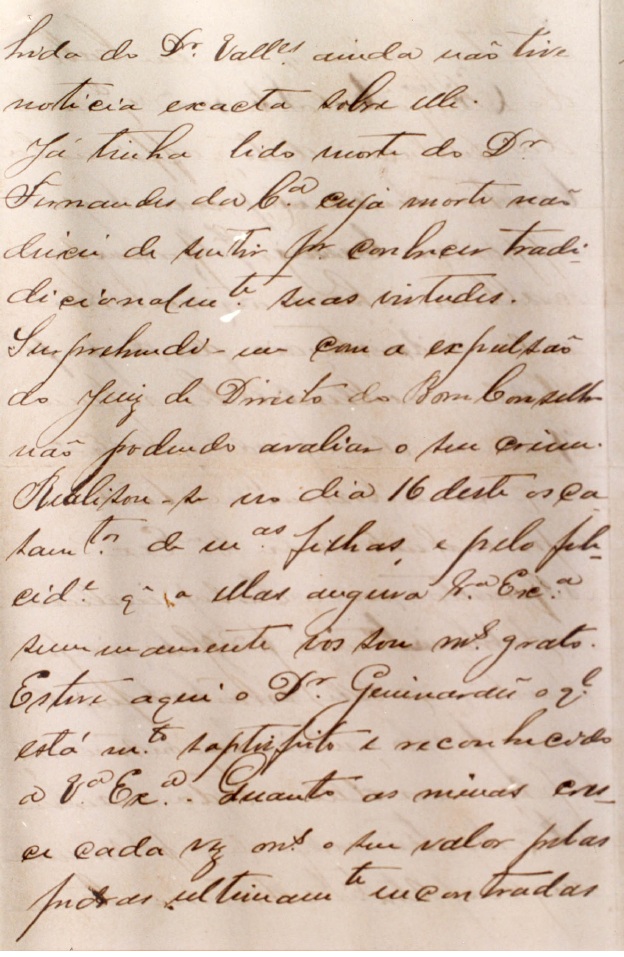 do Dr. Valles ainda não tive
noticia exacta sobre elle.
Já tinha lido morte do Dr
Fernandes da Ca. cuja morte não
deixei de sentir pr. conhecer tradi-
dicionalmte. suas virtudes.
Surprehendi-me com a expulsão
do Juiz de Direito do Bom Conselho
não podendo avaliar o seu crime.
Realisou-se no dia 16 deste os ca
samtos. de mas filhas, e pela feli-
cide. q a ellas augura Va. Exa.
summamente vos sou ms. grato.
Esteve aqui o Dr. o ql
está mto. satisfeito e reconhecido
a Va Exa. Quanto as minas cres-
ce cada vez ms o seu valor pelas
pedras ultimamte encontradas